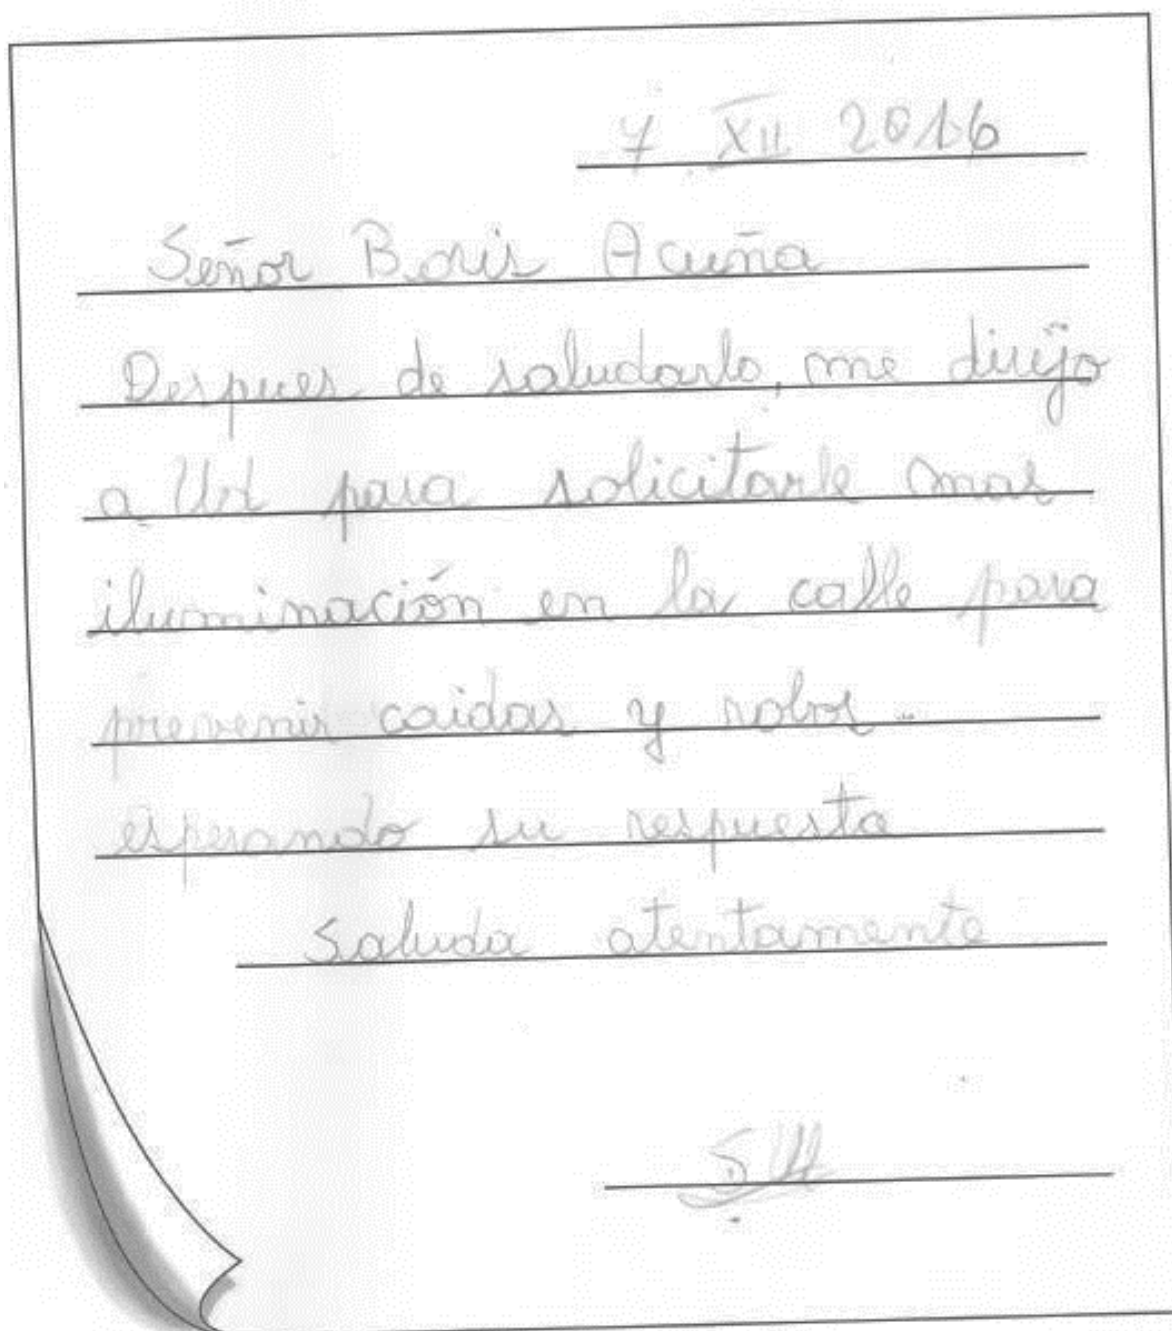 7 XII 2016
Señor Boris Acuña
Despues de saludarlo, me dirijo
a Ud para solicitarle mas
iluminación en la calle para
prevenir caidas y robos.
esperando su respuesta
Saluda atentamente